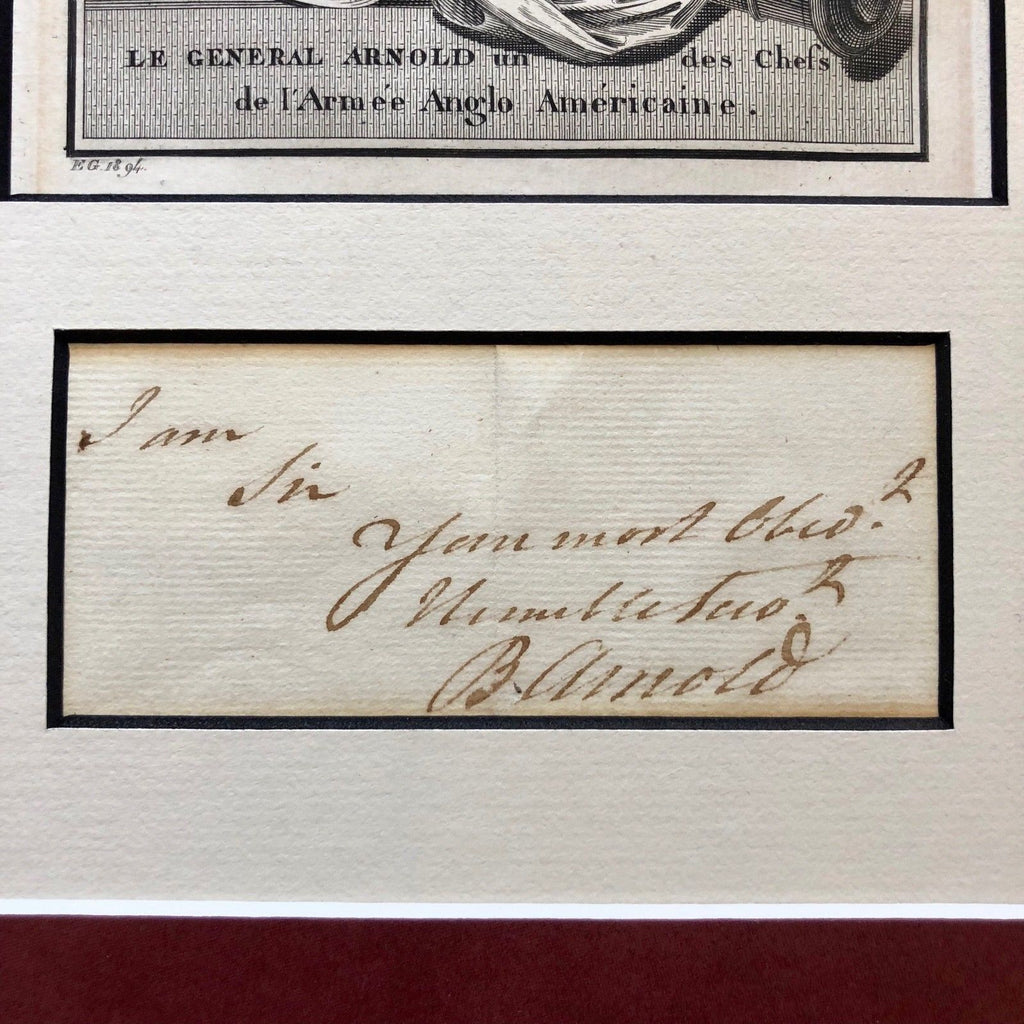 LE GENERAL ARNOLD un des Chefs
de l'Armée Anglo Américaine.
E G. 1894.
I am
Sir
Your most Obed.t
Humble Serv.t
B Arnold